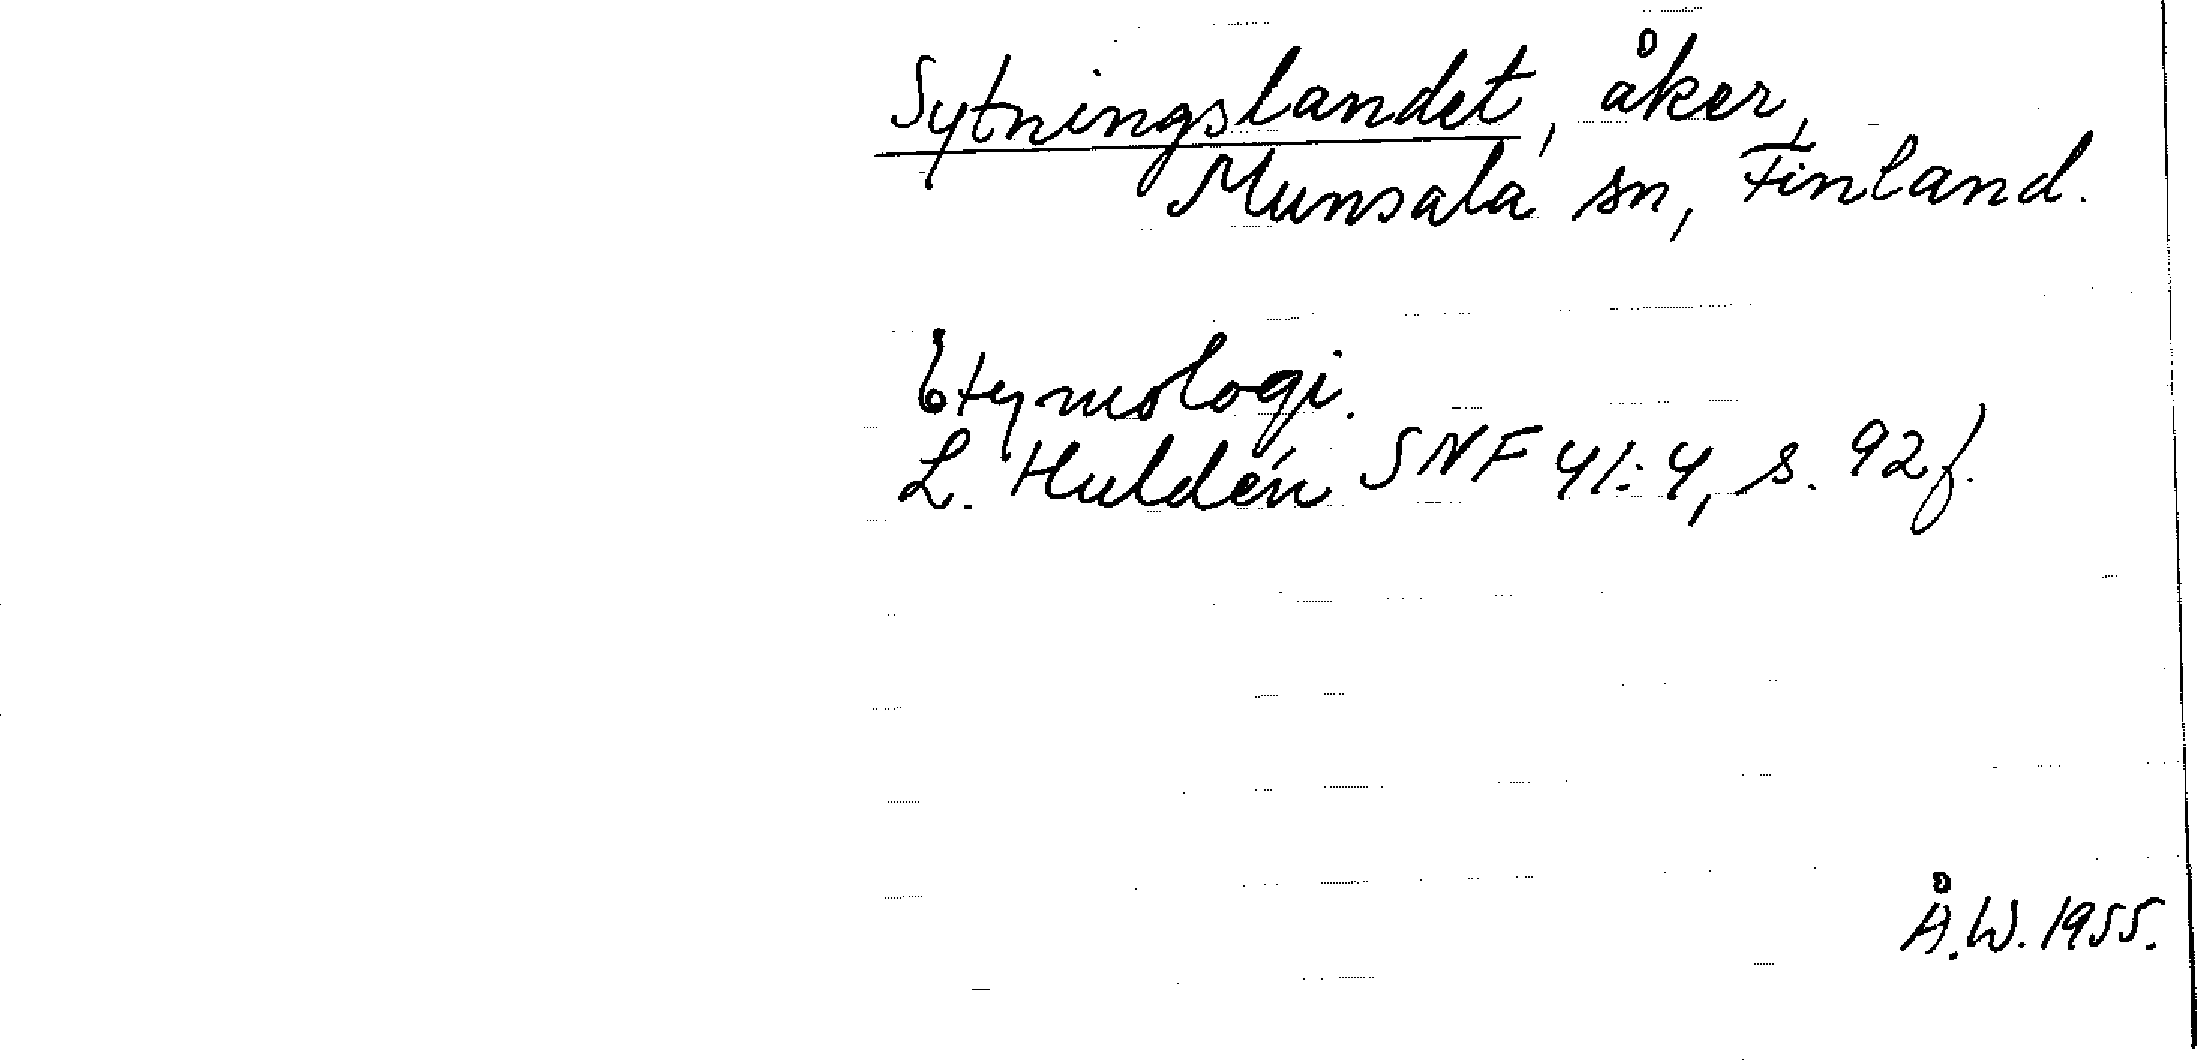 Sytningslandet, åker,
Munsala sn, Finland.
Etymologi.
L. Huldén SNF 41:4, s. 92 f.
Å.W. 1955.